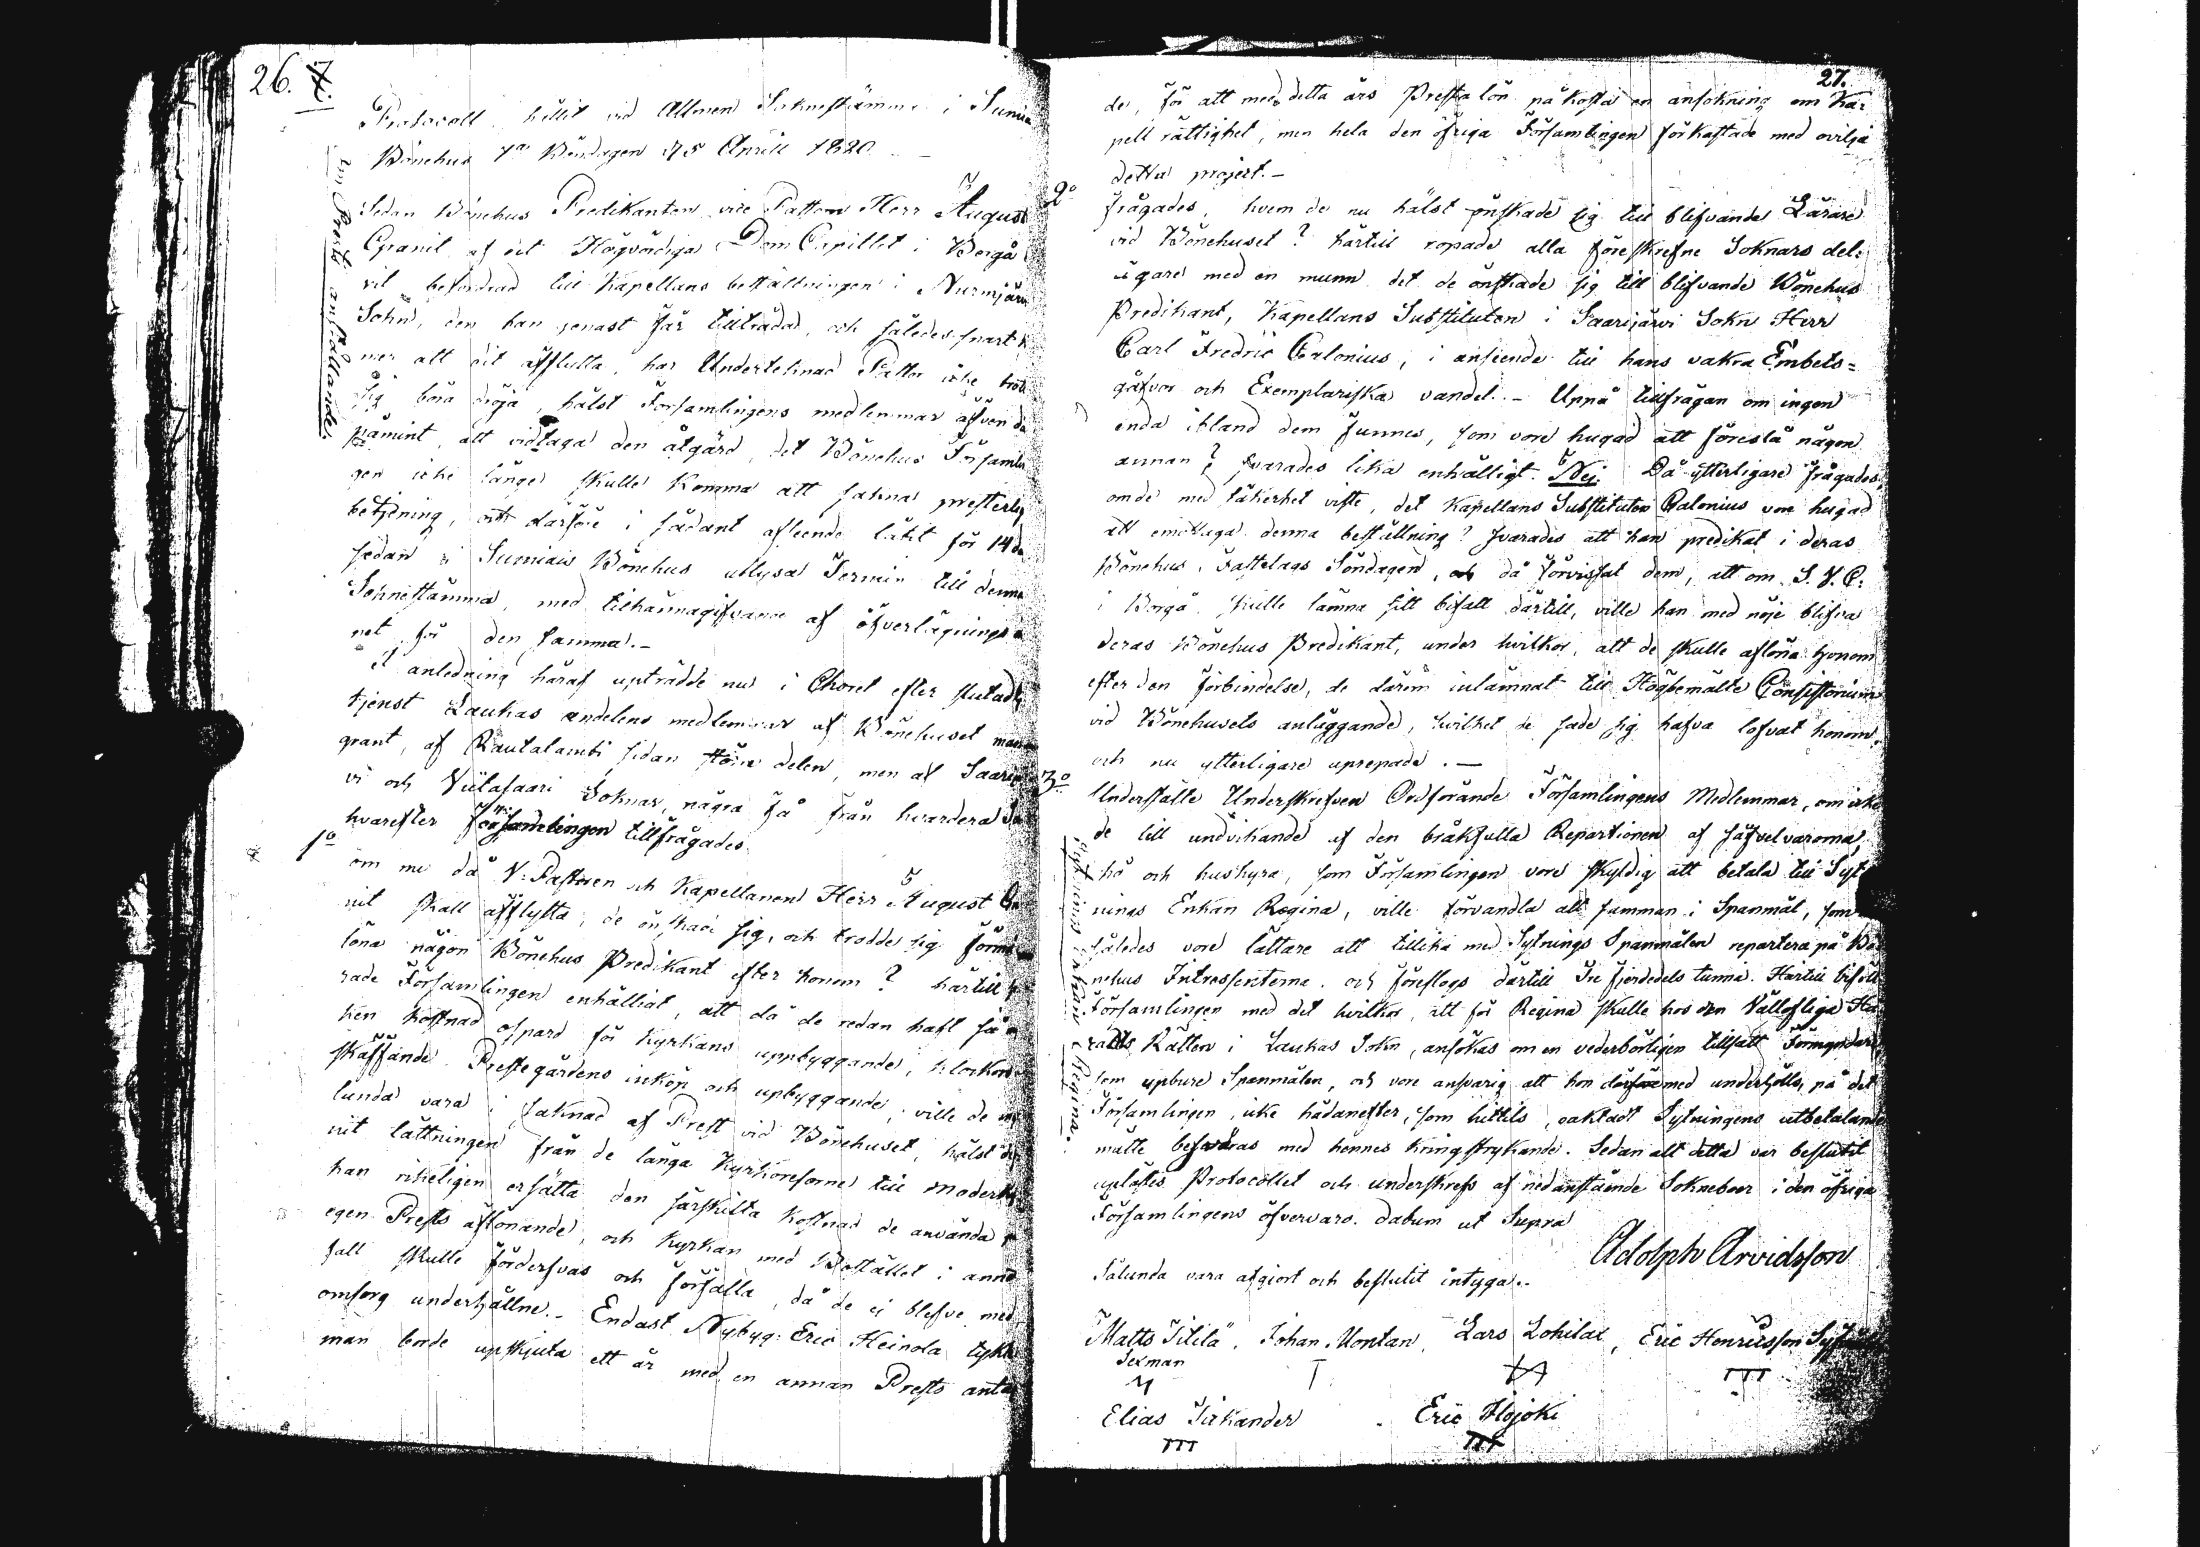 26. 7.
Protocoll, hållit vid Allmen Sockneståmma i Sumia
Bönehus 1a Böndagen d 5 April 1820. –
om Prests anstållande.
Sedan Bönehus Predikanten vice Pastorn Herr August
Granit af det Högvördiga Dom Capitlet i Borgå
vit befordrad till Kapellans beställningen i Nurmijärvi
Sokn, den han genast får tillträda, och således snart
mer att dit afflytta, har Undertecknad Pastor icke trott
sig böra dröja, hälst Församlingens medlemmar äfven
påmint, att vidtaga den åtgärd, det Bönehus Församlin
gen icke länge skulle komma att sakna presterlig
betjening, och därföre i sådant afseende låtit för 14 da
sedan i Sumiais Bönehus utlysa Termin till denna
Sokneståmma, med tilkännagifvande af öfverläggnings
net för den samma. –
I anledning häraf upträdde nu i Choret efter slutad
tjenst Laukas andelens medlemmar af Bönehuset man
grant, af Rautalambi sidan större delen, men af Saari
vi och Viitasaari Soknar, några få från hvardera
hvarefter Församlingen tillfrågades.
1o
om nu då V. Pastoren och Kapellanen Herr August Gra
nit skall afflytta, de önskade sig, och trodde sig förmå
löna någon Bönehus Predikant efter honom? härtill
rade Församlingen enhälligt, att då de redan haft så
ken kostnad ospard för Kyrkans uppbyggande, klockors
skaffande Prestegårdens inköp och upbyggande, ville de
lunda vara i saknad af Prest vid Bönehuset, hälst
nit lättningen från de långa Kyrkoresorne till Moderky
kan rikeligen ersätta den särskilta kostnad de använda
egen Prests aflönande, och Kyrkan med Bostället i annat
fall skulle förderfvas och förfalla, då de ej blefve med
omsorg underhjållne. – Endast Nybyg: Eric Heinola tykte
man borde upskjuta ett år med en annan Prests anta
27.
de, för att med detta års Presta lön påkosta en ansökning om Ka-
pell rättighet, men hela den öfriga Församlingen förkastade med ovilja
detta project. –
2o
frågades, hvem de nu hälst önskade sig till blifvande Lärare
vid Bönehuset? härtill ropade alla föreskrefne Soknars del-
ägare med en munn det de önskade sig till blifvande Bönehus
Predikant, Kapellans Substituten i Saarijärvi Sokn Herr
Carl Fredric Calonius, i anseende till hans vakra Embets=
gåfvor och Exemplariska vandel. – Uppå tillfrågan om ingen
enda ibland dem funnes, som vore hugad att föreslå någon
annan? svarades lika enhälligt. Nej. Då ytterligare frågades,
om de med säkerhet viste, det Kapellans Substituten Calonius vore hugad
att emottaga denna beställning? svarades att han predikat i deras
Bönehus, Fastelags Söndagen, och då förvissat dem, att om S. V. C.
i Borgå skulle lämna sitt bifall därtill, ville han med nöje blifva
deras Bönehus Predikant, under hvilkor, att de skulle aflöna honom
efter den förbindelse, de därom inlämnat till Högbemälte Consistorium
vid Bönehusets anläggande, hvilket de sade sig hafva lofvat honom,
och nu ytterligare uprepade. –
3o
Sytnings Enkan Regina.
Underställte Underskrefven Ordförande Församlingens Medlemmar, om icke
de till undvikande af den bråkfulla Repartionen af såfvelvarorna,
hö och hushyra, som Församlingen vore skyldig att betala till Syt
nings Enkan Regina, ville förvandla allt samman i Spanmål, som
således vore lättare att tillika med Sytnings Spanmålen repartera på Bö
nehus Intressenterna. och föreslogs därtill Tre fjerdedels tunna. Härtill biföll
Församlingen med det hvilkor, att för Regina skulle hos den Vällofliga Hä
rads Rätten i Laukas Sokn, ansökas om en vederbörligen tillsatt Förmyndare,
som upbure Spanmålen, och vore ansvarig att hon därmed underhölls, på det
Församlingen, icke hädanefter, som hittils, oaktadt Sytningens utbetalande
måtte besväras med hennes kringstrykande. Sedan allt detta var beslutit
uplästes Protocollet och underskrefs af nedanstående Sokneboer i den öfriga
Församlingens öfvervaro. Datum ut Supra
Adolph Arvidsson
Sålunda vara afgjort och beslutit intyga..
Matts Titilä, Johan Montan, Lars Lohilax, Eric Henricsson
Sexman
Elias Sirkander Eric Hojoki